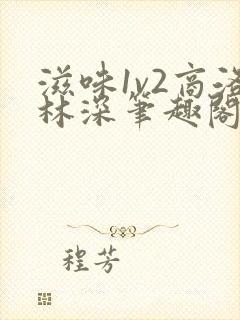 滋味1v2高洛
林深笔趣閣
程芳